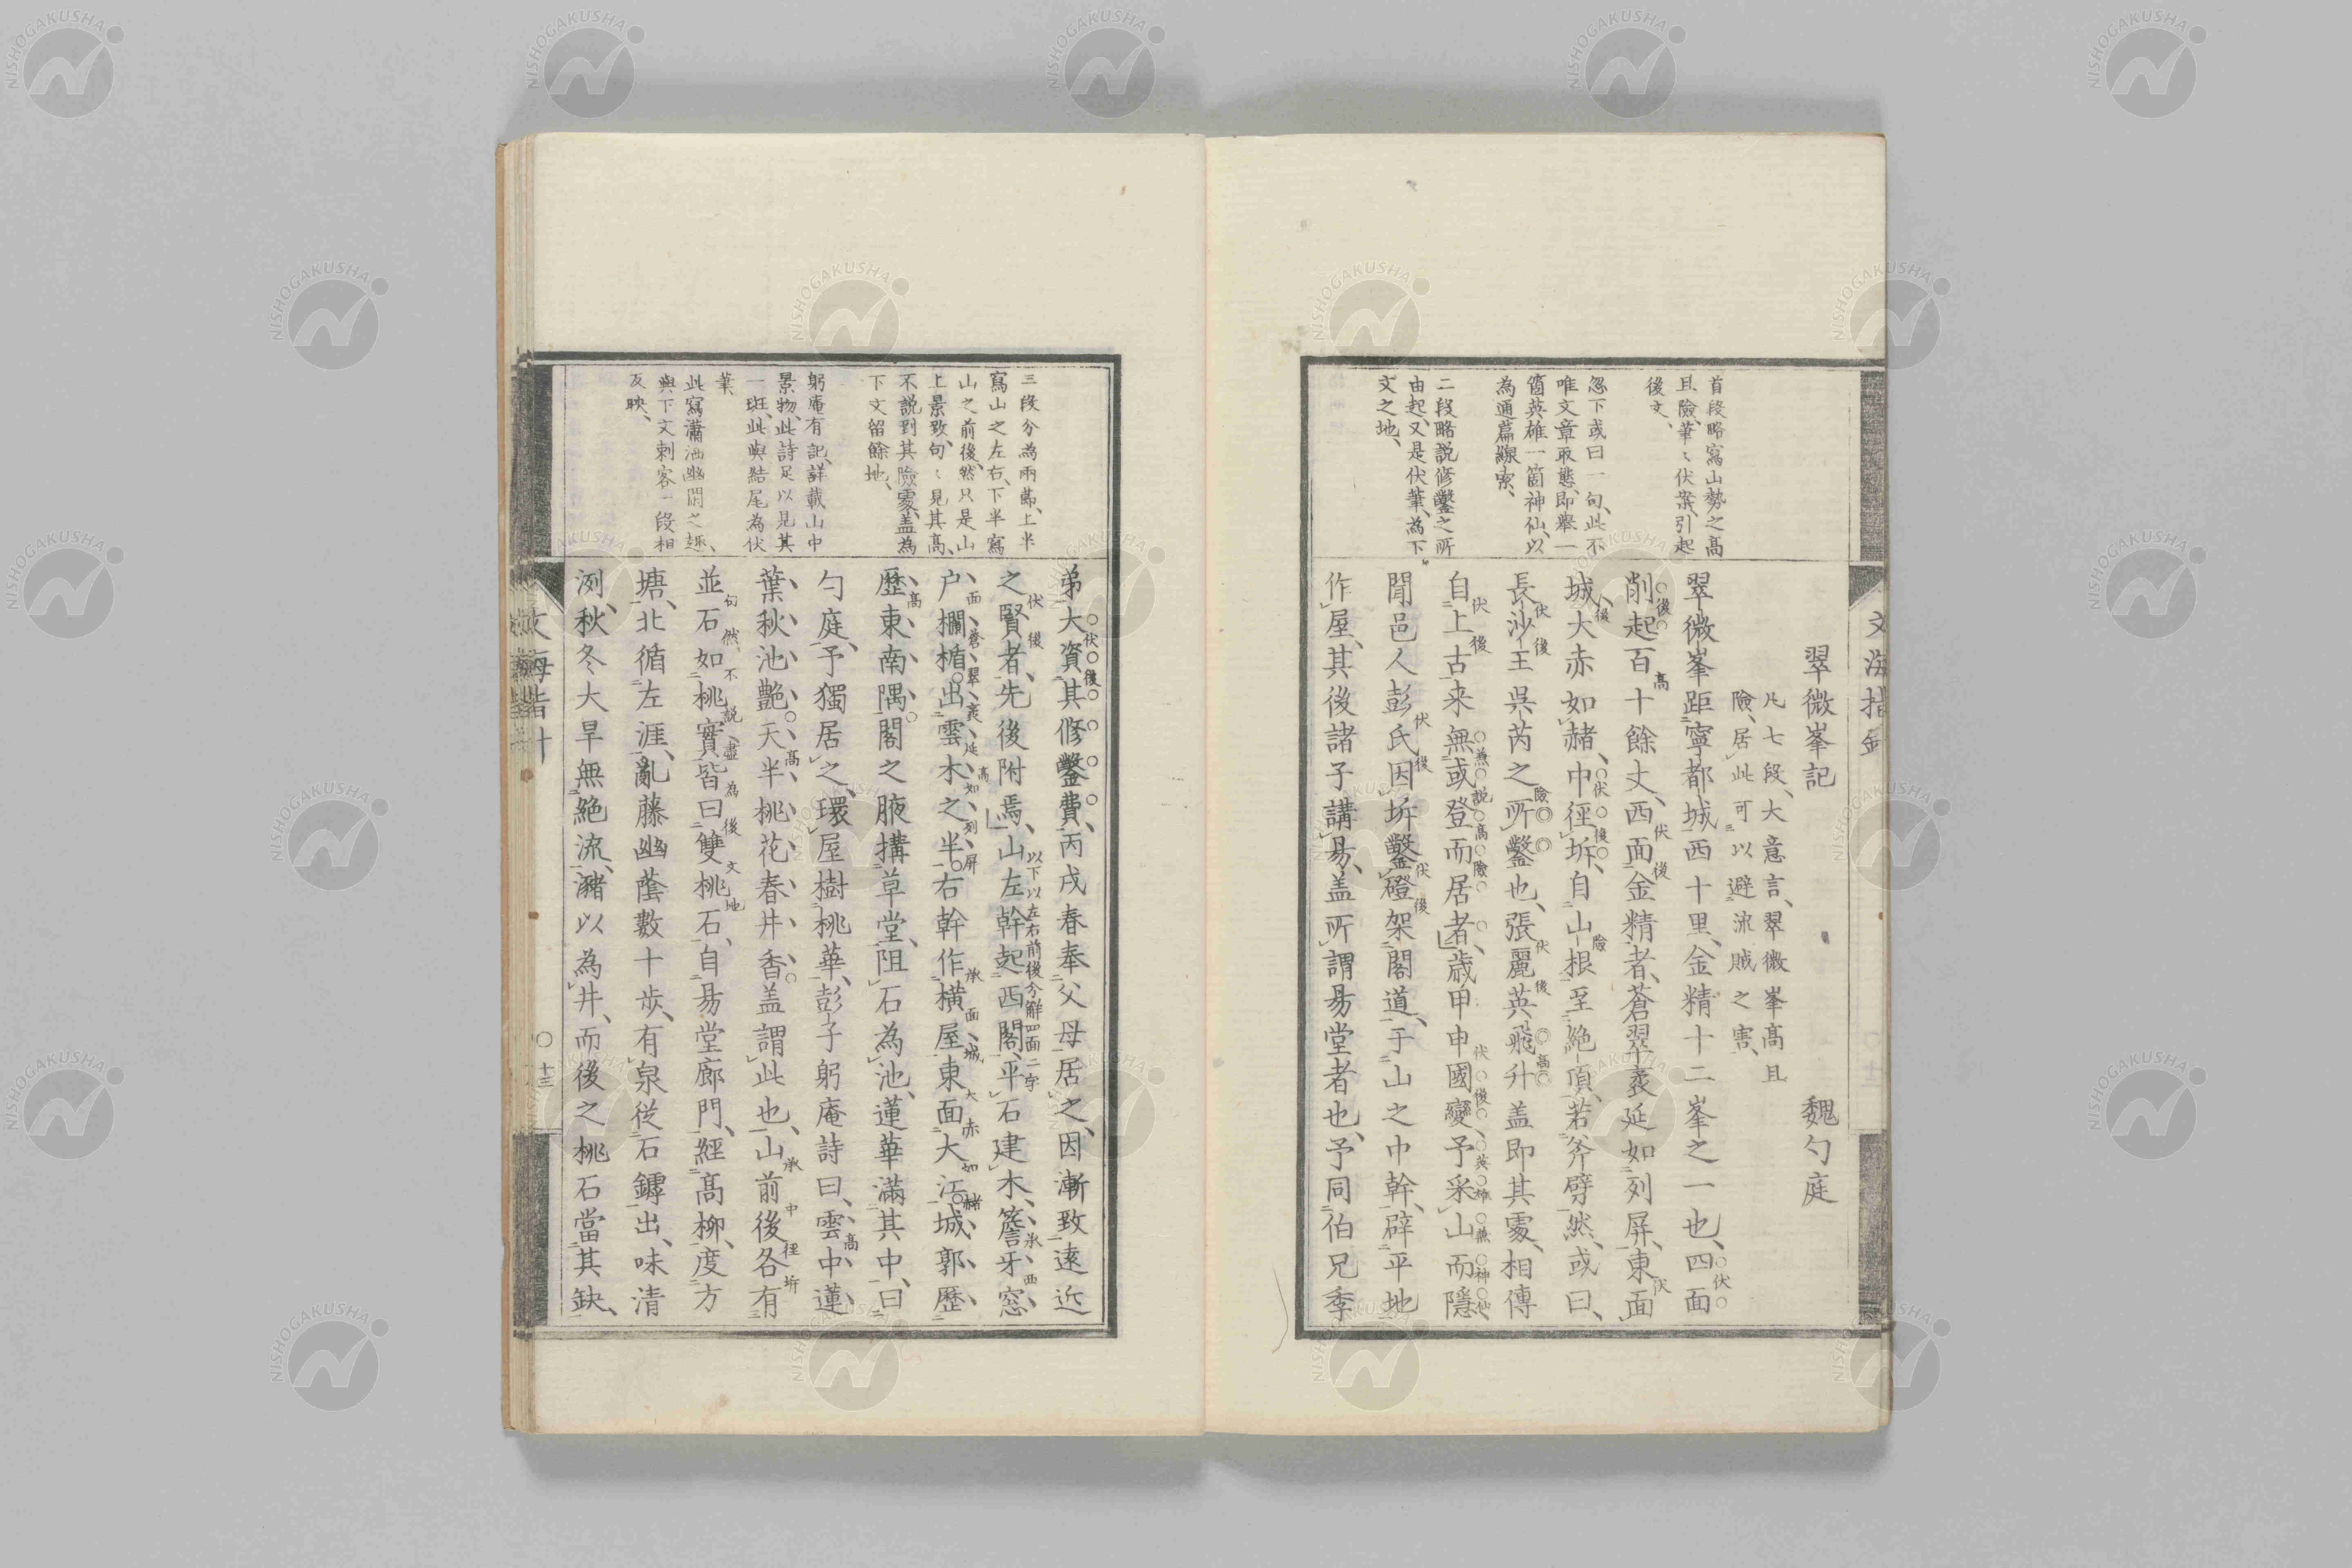 文海指針
翠微峯記　魏勺庭
凡七段、大意言、翠微峯高且
險、居此可以避流賊之害、
翠微峯距寧都城西十里、金精十二峯之一也、四面
削起百十餘丈、西面金精者、蒼翠袤延如列屏、東面
城大赤如赭、中徑坼、自山根至絕頂、若斧劈然、或曰、
長沙王吳芮之所鑿也、張麗英飛升盖即其處、相傳
自上古来無或登而居者、歲甲申國變、予采山而隱、
聞邑人彭氏因坼鑿磴架閣道、于山之中幹、辟平地
作屋、其後諸子講易、盖所謂易堂者也、予同伯兄季
首段略寫山勢之高
且險、筆〻伏案、引起
後文、
忽下或曰一句、此不
唯文章取態、即舉一
箇英雄一箇神仙、以
為通篇線索、
二段略説修鑿之所
由起、又是伏筆、為下
文之地、
弟大資其修鑿費、丙戌春奉父母居之、因漸致遠近
之賢者、先後附焉、山左幹起西閣、平石建木、簷牙窓
户、欄楯出雲木之半、右幹作横屋、東面大江、城郭歷
歷、東南隅閣之腋搆草堂、阻石為池、蓮華滿其中、曰
勺庭、予獨居之、環屋樹桃華、彭子躬庵詩曰、雲中蓮
葉秋池艷、天半桃花春井香、盖謂此也、山前後各有
並石如桃實、皆曰雙桃石、自易堂廊門、經高柳、度方
塘、北循左涯、亂藤幽蔭數十步、有泉從石罅出、味清
洌、秋冬大旱無絕流、瀦以為井、而後之桃石當其缺、
三段分為兩節、上半
寫山之左右、下半寫
山之前後、然只是山
上景致、句〻見其高、
不説到其險處、盖為
下文留餘地、
躬庵有記、詳載山中
景物、此詩足以見其
一斑、此與結尾為伏
筆
此寫瀟洒幽閑之趣、
與下文刺客一段相
反映、
以下以左右前後分解四面二字
十三
NISHOGAKUSHA